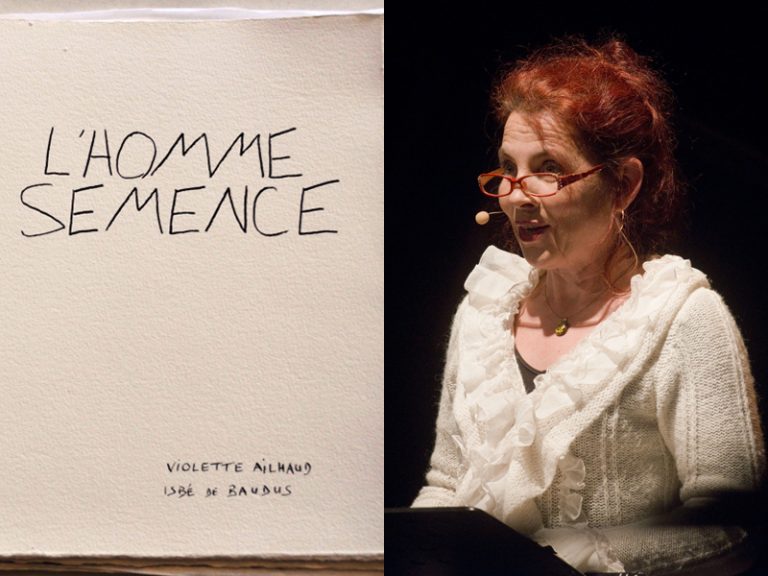 L'HOMME
SEMENCE
VIOLETTE AiLHAUD
ISBÉ DE BAUDUS